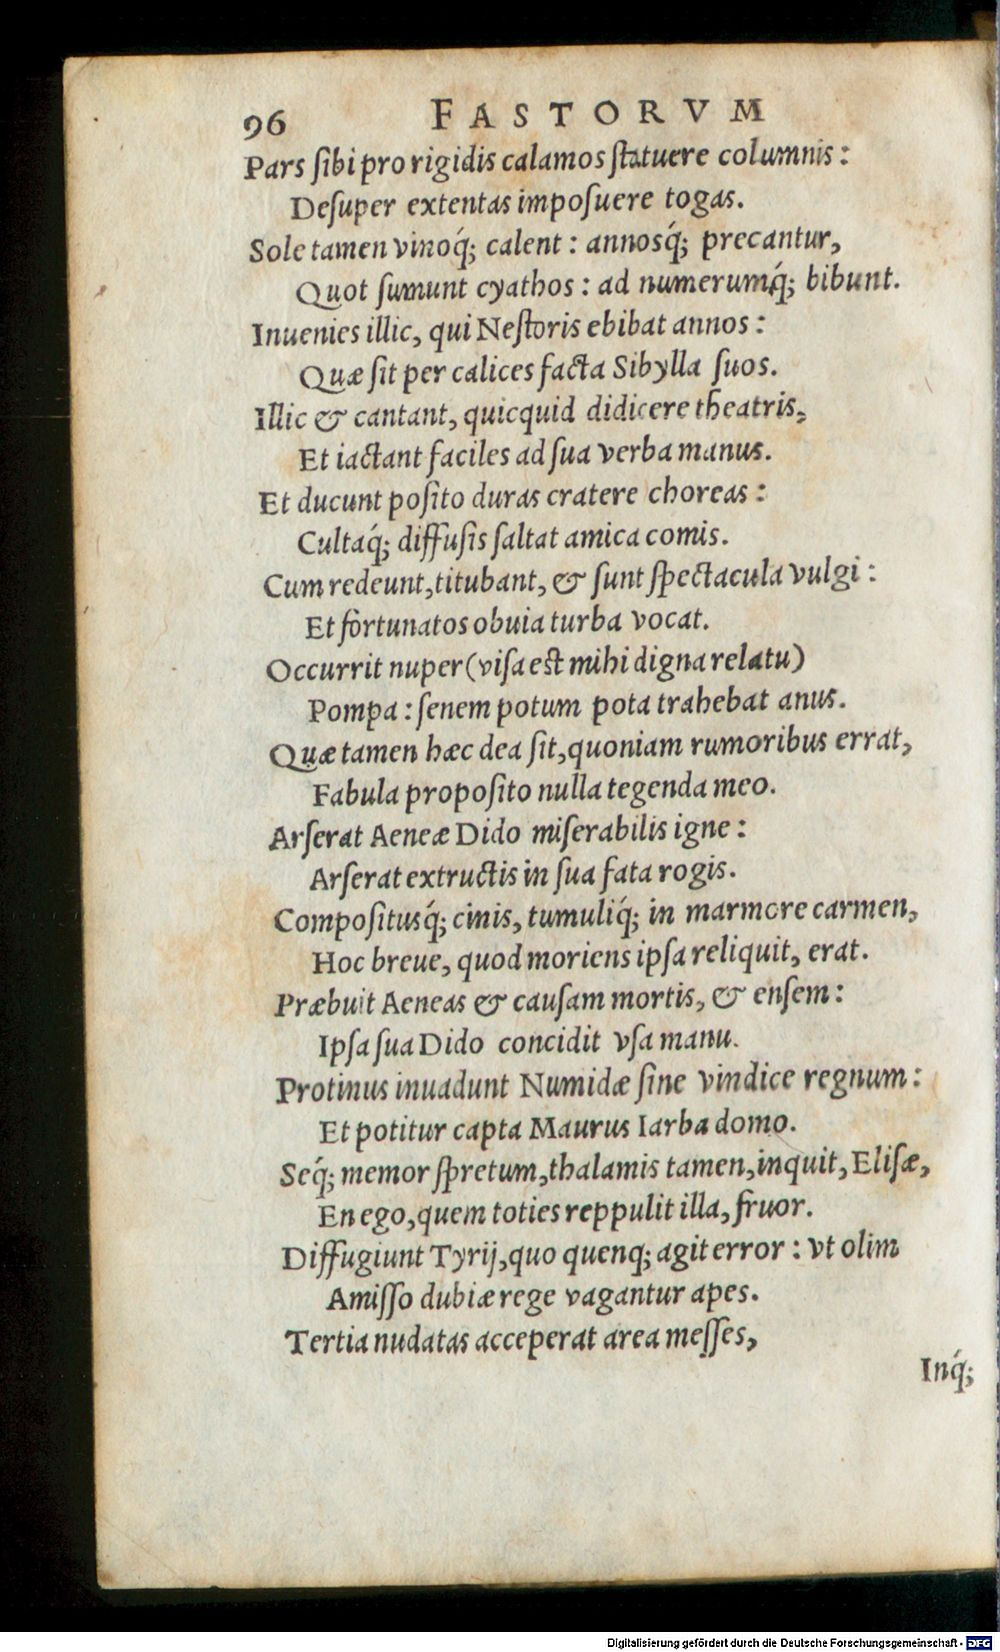 96 FASTORVM
Pars ſibi pro rigidis calamos ſtatuere columnis:
Deſuper extentas impoſuere togas.
Sole tamen vinoq́; calent: annosq́; precantur,
Quot ſumunt cyathos: ad numerumq́; bibunt.
Inuenies illic, qui Neſtoris ebibat annos:
Quæ ſit per calices facta Sibylla ſuos.
Illic & cantant, quicquid didicere theatris,
Et iactant faciles ad ſua verba manus.
Et ducunt poſito duras cratere choreas:
Cultaq́; diffuſis ſaltat amica comis.
Cum redeunt, titubant, & ſunt ſpectacula vulgi:
Et fortunatos obuia turba vocat.
Occurrit nuper (viſa est mihi digna relatu)
Pompa: ſenem potum pota trahebat anus.
Quæ tamen hæc dea ſit, quoniam rumoribus errat,
Fabula propoſito nulla tegenda meo.
Arſerat Aeneæ Dido miſerabilis igne:
Arſerat extructis in ſua fata rogis.
Compoſitusq́; cinis, tumuliq́; in marmore carmen,
Hoc breue, quod moriens ipſa reliquit, erat.
Præbuit Aeneas & cauſam mortis, & enſem:
Ipſa ſua Dido concidit vſa manu.
Protinus inuadunt Numidæ ſine vindice regnum:
Et potitur capta Maurus Iarba domo.
Seq́; memor ſpretum, thalamis tamen, inquit, Eliſæ,
En ego, quem toties reppulit illa, fruor.
Diffugiunt Tyrij, quo quenq; agit error: vt olim
Amiſſo dubiæ rege vagantur apes.
Tertia nudatas acceperat area meſſes,
Inq́;
Digitalisierung gefördert durch die Deutsche Forschungsgemeinschaft - DFG